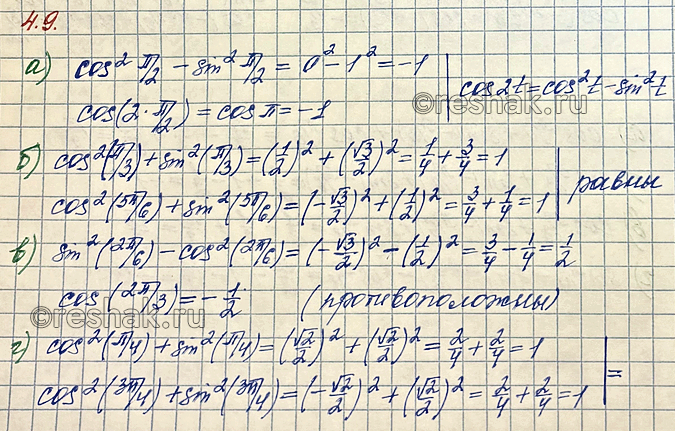 4.9.
а) cos² π/2 − sin² π/2 = 0² − 1² = −1 | cos2t = cos²t − sin²t
cos(2·π/2) = cos π = −1
б) cos²(π/3) + sin²(π/3) = (1/2)² + (√3/2)² = 1/4 + 3/4 = 1
cos²(5π/6) + sin²(5π/6) = (−√3/2)² + (1/2)² = 3/4 + 1/4 = 1 | равны
в) sin²(2π/6) − cos²(2π/6) = (−√3/2)² − (1/2)² = 3/4 − 1/4 = 1/2
cos(2π/3) = −1/2 (противоположны)
г) cos²(π/4) + sin²(π/4) = (√2/2)² + (√2/2)² = 2/4 + 2/4 = 1
cos²(3π/4) + sin²(3π/4) = (−√2/2)² + (√2/2)² = 2/4 + 2/4 = 1 | =
©reshak.ru
©reshak.ru